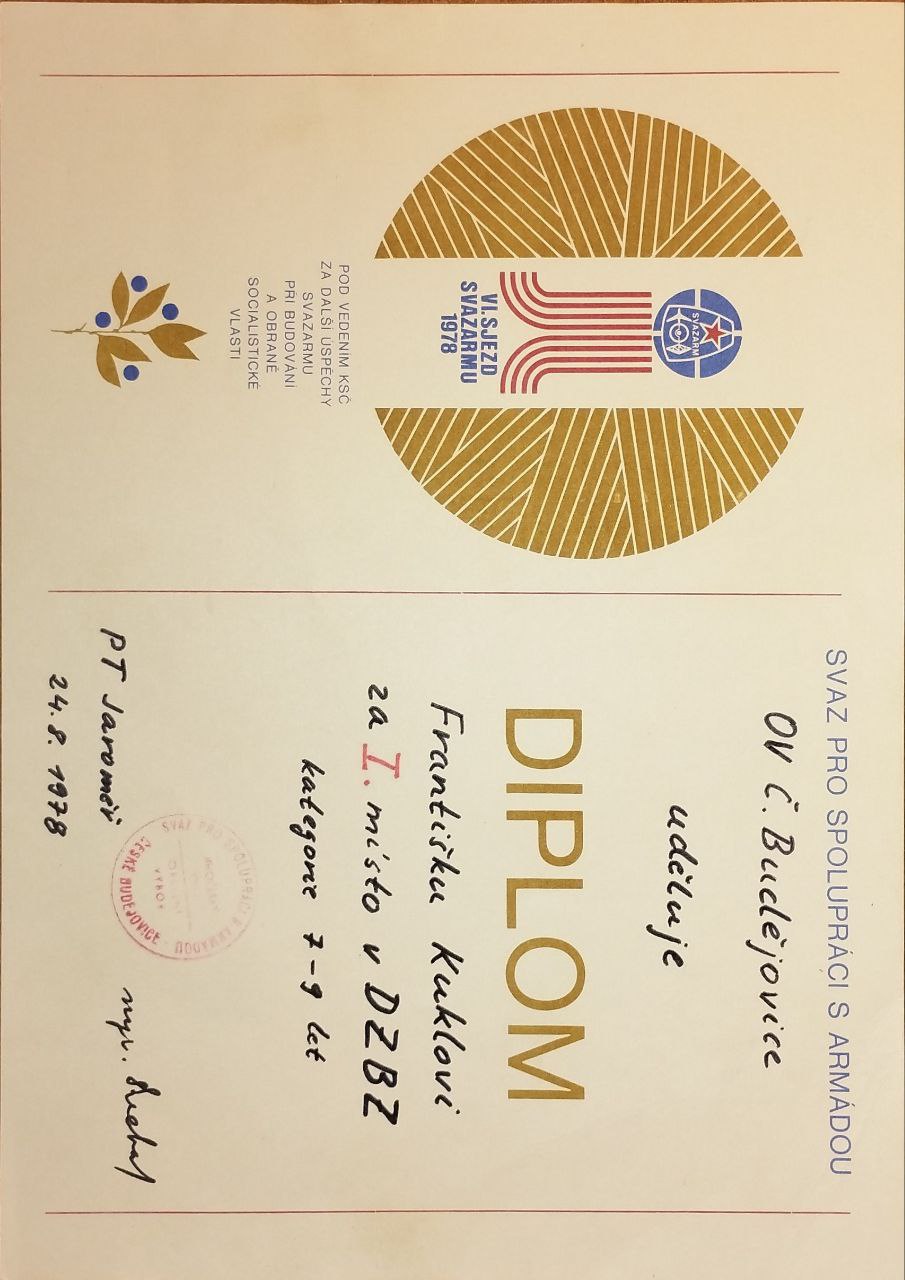 SVAZARM
VI. SJEZD
SVAZARMU
1978
POD VEDENÍM KSČ
ZA DALŠÍ ÚSPĚCHY
SVAZARMU
PŘI BUDOVÁNÍ
A OBRANĚ
SOCIALISTICKÉ
VLASTI
SVAZ PRO SPOLUPRÁCI S ARMÁDOU
OV Č. Budějovice
uděluje
DIPLOM
Františku Kuklovi
za I. místo v DZBZ
kategorie 7-9 let
SVAZ PRO SPOLUPRÁCI S ARMÁDOU
OKRESNÍ
VÝBOR
ČESKÉ BUDĚJOVICE
PT Jaroměř
24.8.1978